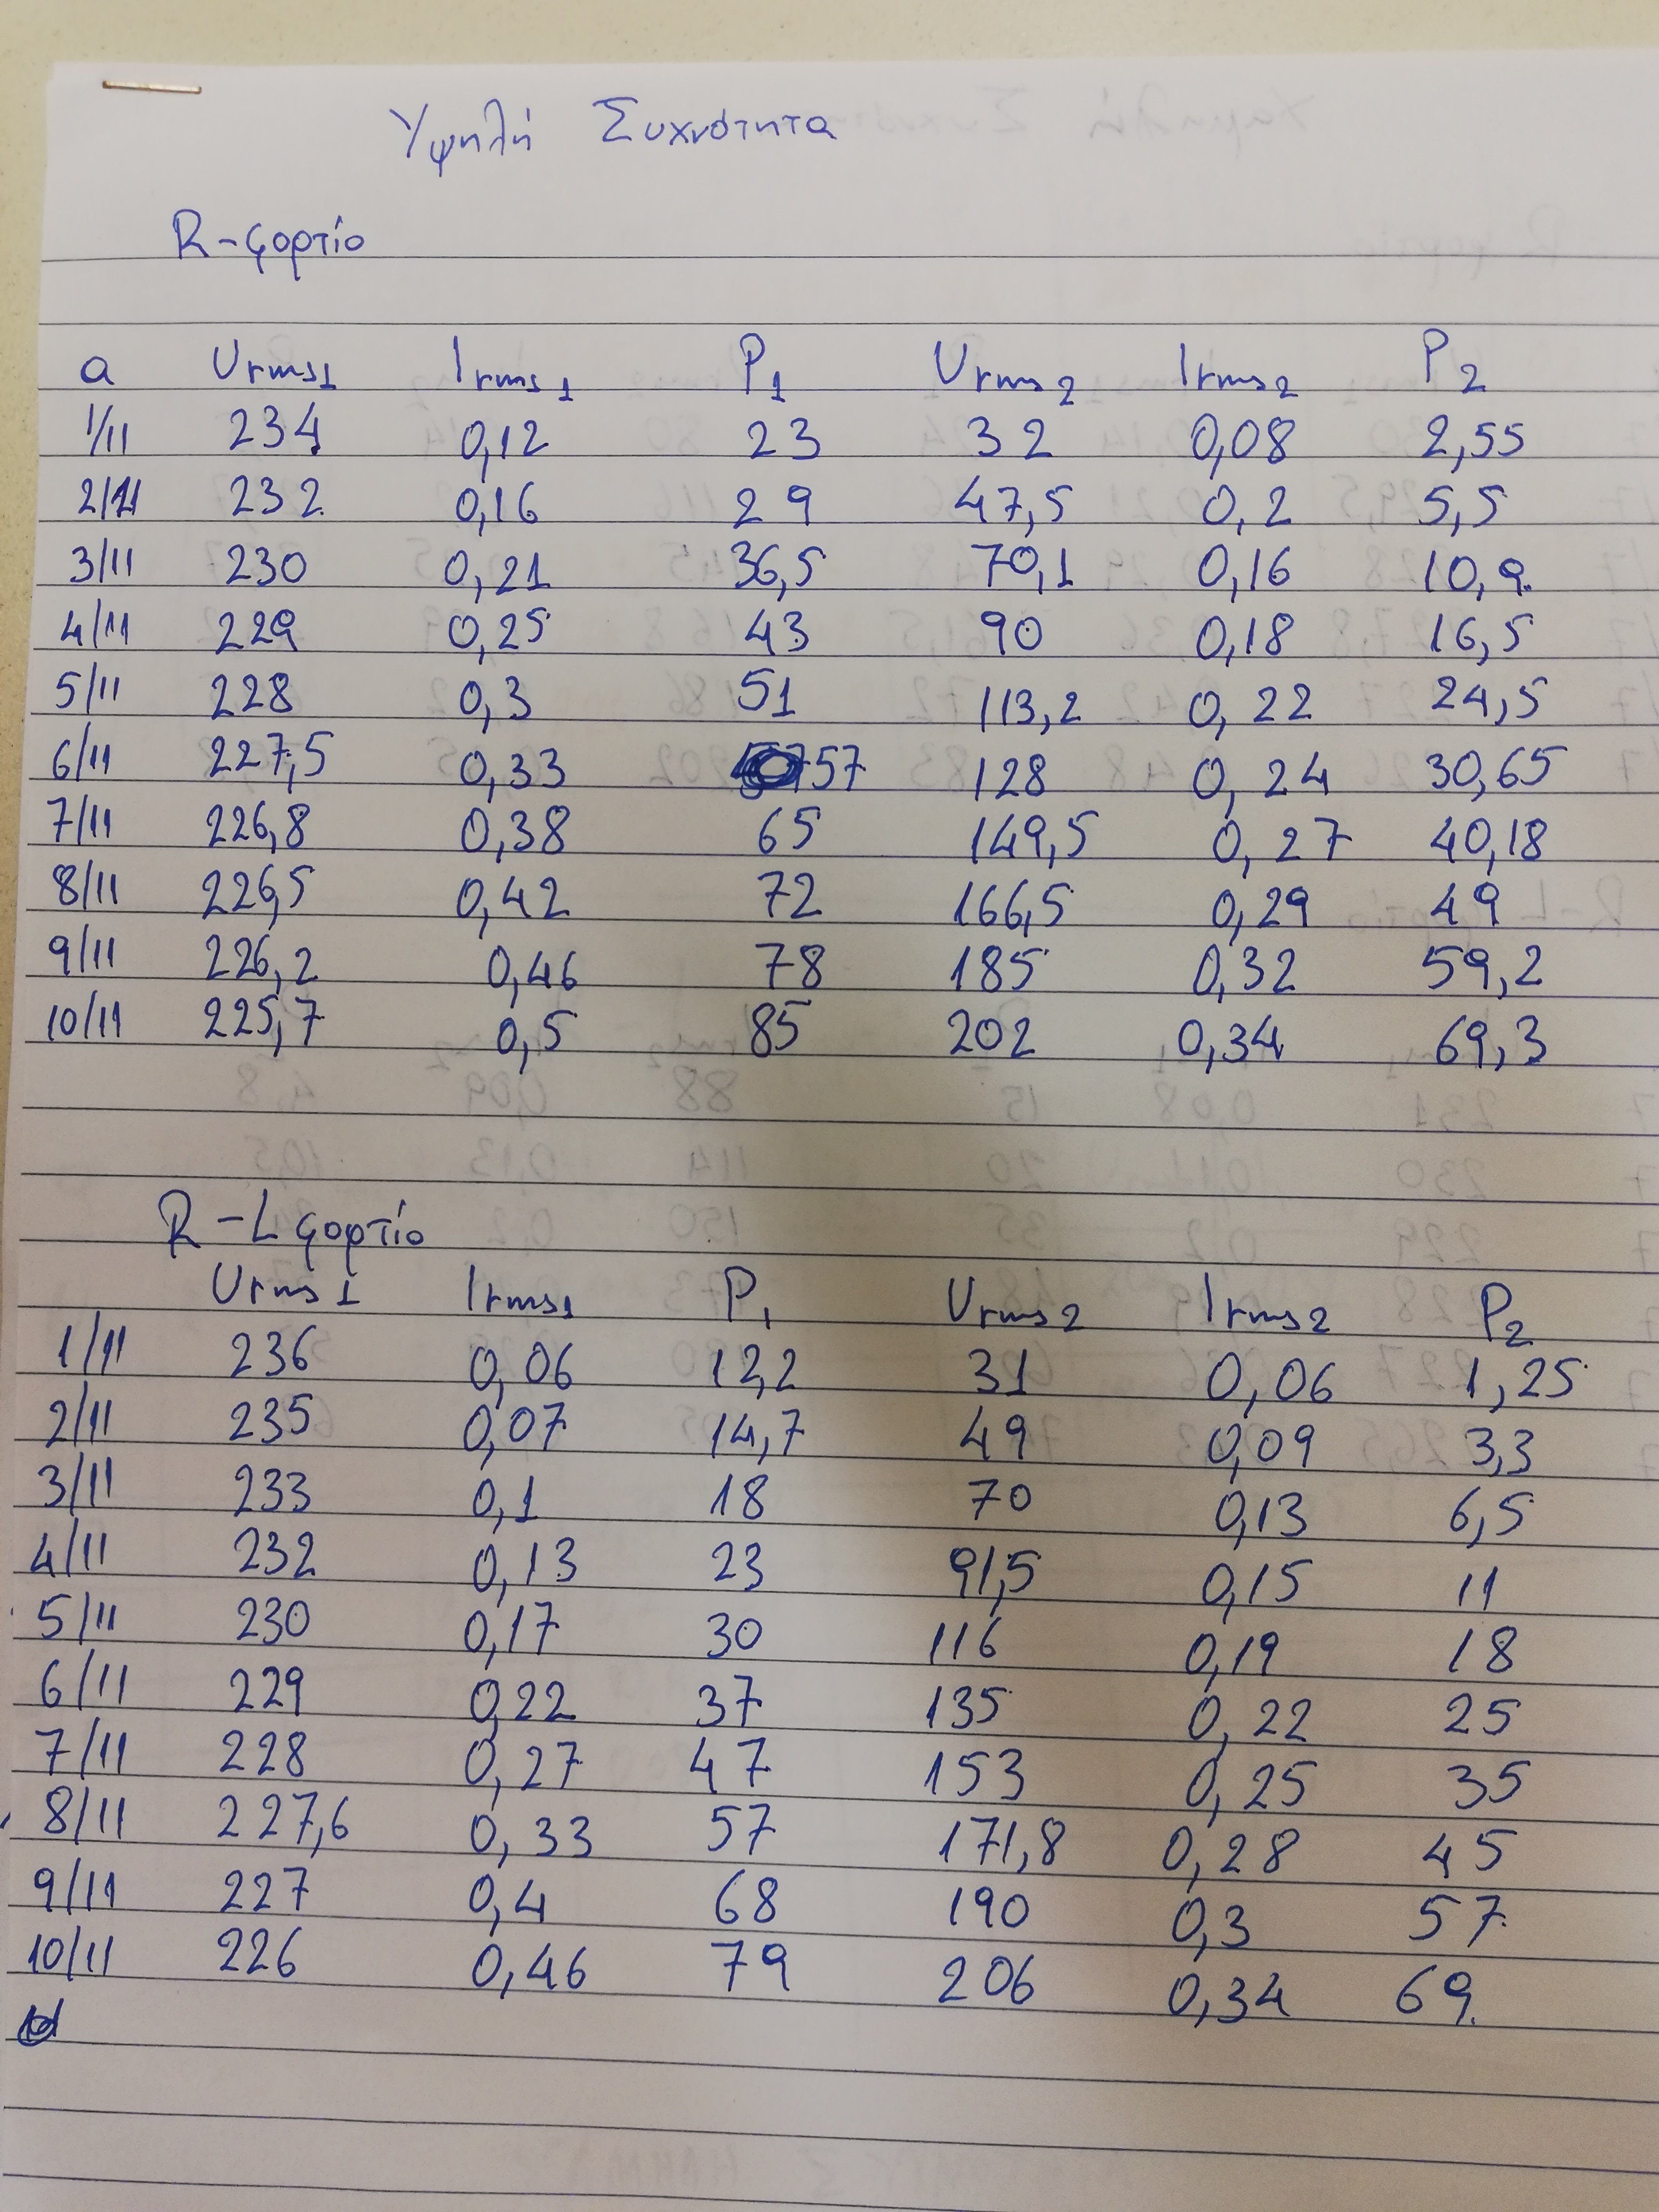 Υψηλή Συχνότητα
R-φορτίο
a Vrms1 Irms1 P1 Vrms2 Irms2 P2
1/11 234 0,12 23 32 0,08 2,55
2/11 232 0,16 29 47,5 0,2 5,5
3/11 230 0,21 36,5 70,1 0,16 10,9
4/11 229 0,25 43 90 0,18 16,5
5/11 228 0,3 51 113,2 0,22 24,5
6/11 227,5 0,33 57 128 0,24 30,65
7/11 226,8 0,38 65 149,5 0,27 40,18
8/11 226,5 0,42 72 166,5 0,29 49
9/11 226,2 0,46 78 185 0,32 59,2
10/11 225,7 0,5 85 202 0,34 69,3
R-L φορτίο
Vrms1 Irms1 P1 Vrms2 Irms2 P2
1/11 236 0,06 12,2 31 0,06 1,25
2/11 235 0,07 14,7 49 0,09 3,3
3/11 233 0,1 18 70 0,13 6,5
4/11 232 0,13 23 91,5 0,15 11
5/11 230 0,17 30 116 0,19 18
6/11 229 0,22 37 135 0,22 25
7/11 228 0,27 47 153 0,25 35
8/11 227,6 0,33 57 171,8 0,28 45
9/11 227 0,4 68 190 0,3 57
10/11 226 0,46 79 206 0,34 69